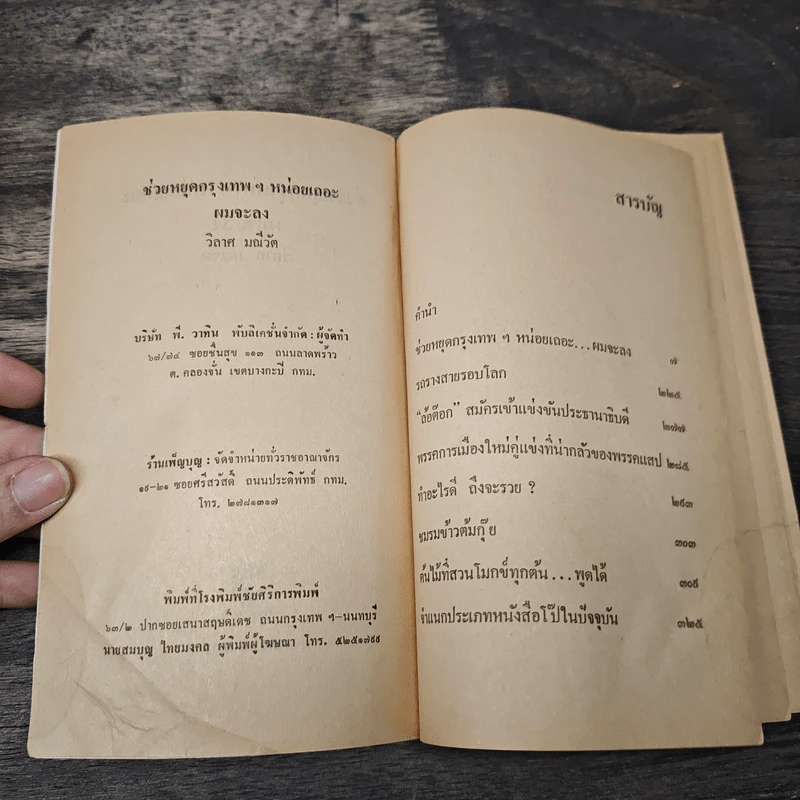 ช่วยหยุดกรุงเทพ ฯ หน่อยเถอะ
ผมจะลง
วิลาศ มณีวัต
บริษัท พี. วาทิน พับลิเคชั่นจำกัด : ผู้จัดทำ
๖๗/๗๔ ซอยชื่นสุข ๑๑๓ ถนนลาดพร้าว
ต. คลองจั่น เขตบางกะปิ กทม.
ร้านเพ็ญบุญ : จัดจำหน่ายทั่วราชอาณาจักร
๑๙-๒๑ ซอยศรีสวัสดิ์ ถนนประดิพัทธ์ กทม.
โทร. ๒๗๘๑๓๑๗
พิมพ์ที่โรงพิมพ์ชัยศิริการพิมพ์
๖๓/๒ ปากซอยเสนาสฤษดิ์เดช ถนนกรุงเทพ ฯ-นนทบุรี
นายสมบุญ ไทยมงคล ผู้พิมพ์ผู้โฆษณา โทร. ๕๒๕๑๗๙๙
สารบัญ
คำนำ
ช่วยหยุดกรุงเทพ ฯ หน่อยเถอะ...ผมจะลง ๗
รถรางสายรอบโลก ๒๒๕
“ล้อต๊อก” สมัครเข้าแข่งขันประธานาธิบดี ๒๗๗
พรรคการเมืองใหม่คู่แข่งที่น่ากลัวของพรรคแสป ๒๘๕
ทำอะไรดี ถึงจะรวย ? ๒๙๓
ชมรมข้าวต้มกุ๊ย ๓๐๓
ต้นไม้ที่สวนโมกข์ทุกต้น...พูดได้ ๓๐๙
จำแนกประเภทหนังสือโป๊ในปัจจุบัน ๓๒๕